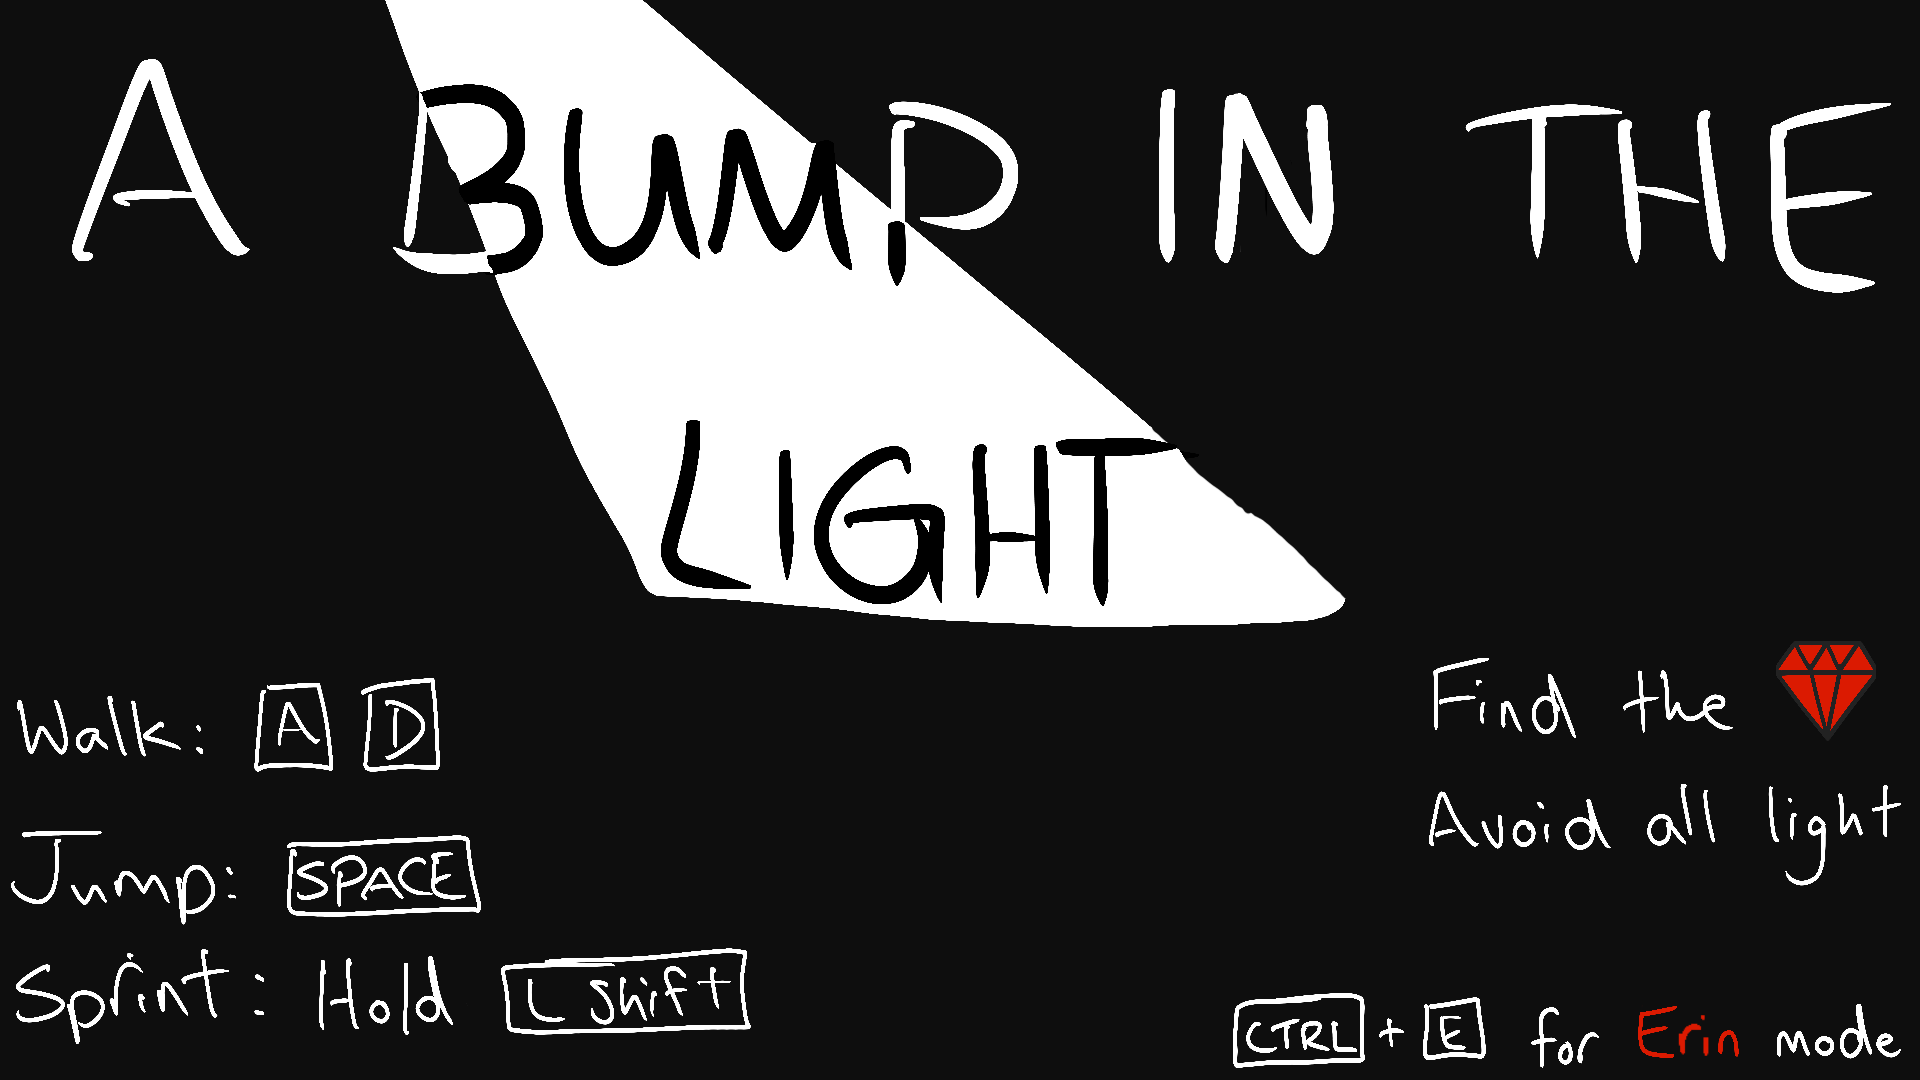 A BUMP IN THE
LIGHT
Walk: A D
Jump: SPACE
Sprint: Hold L Shift
Find the
Avoid all light
CTRL + E for Erin mode